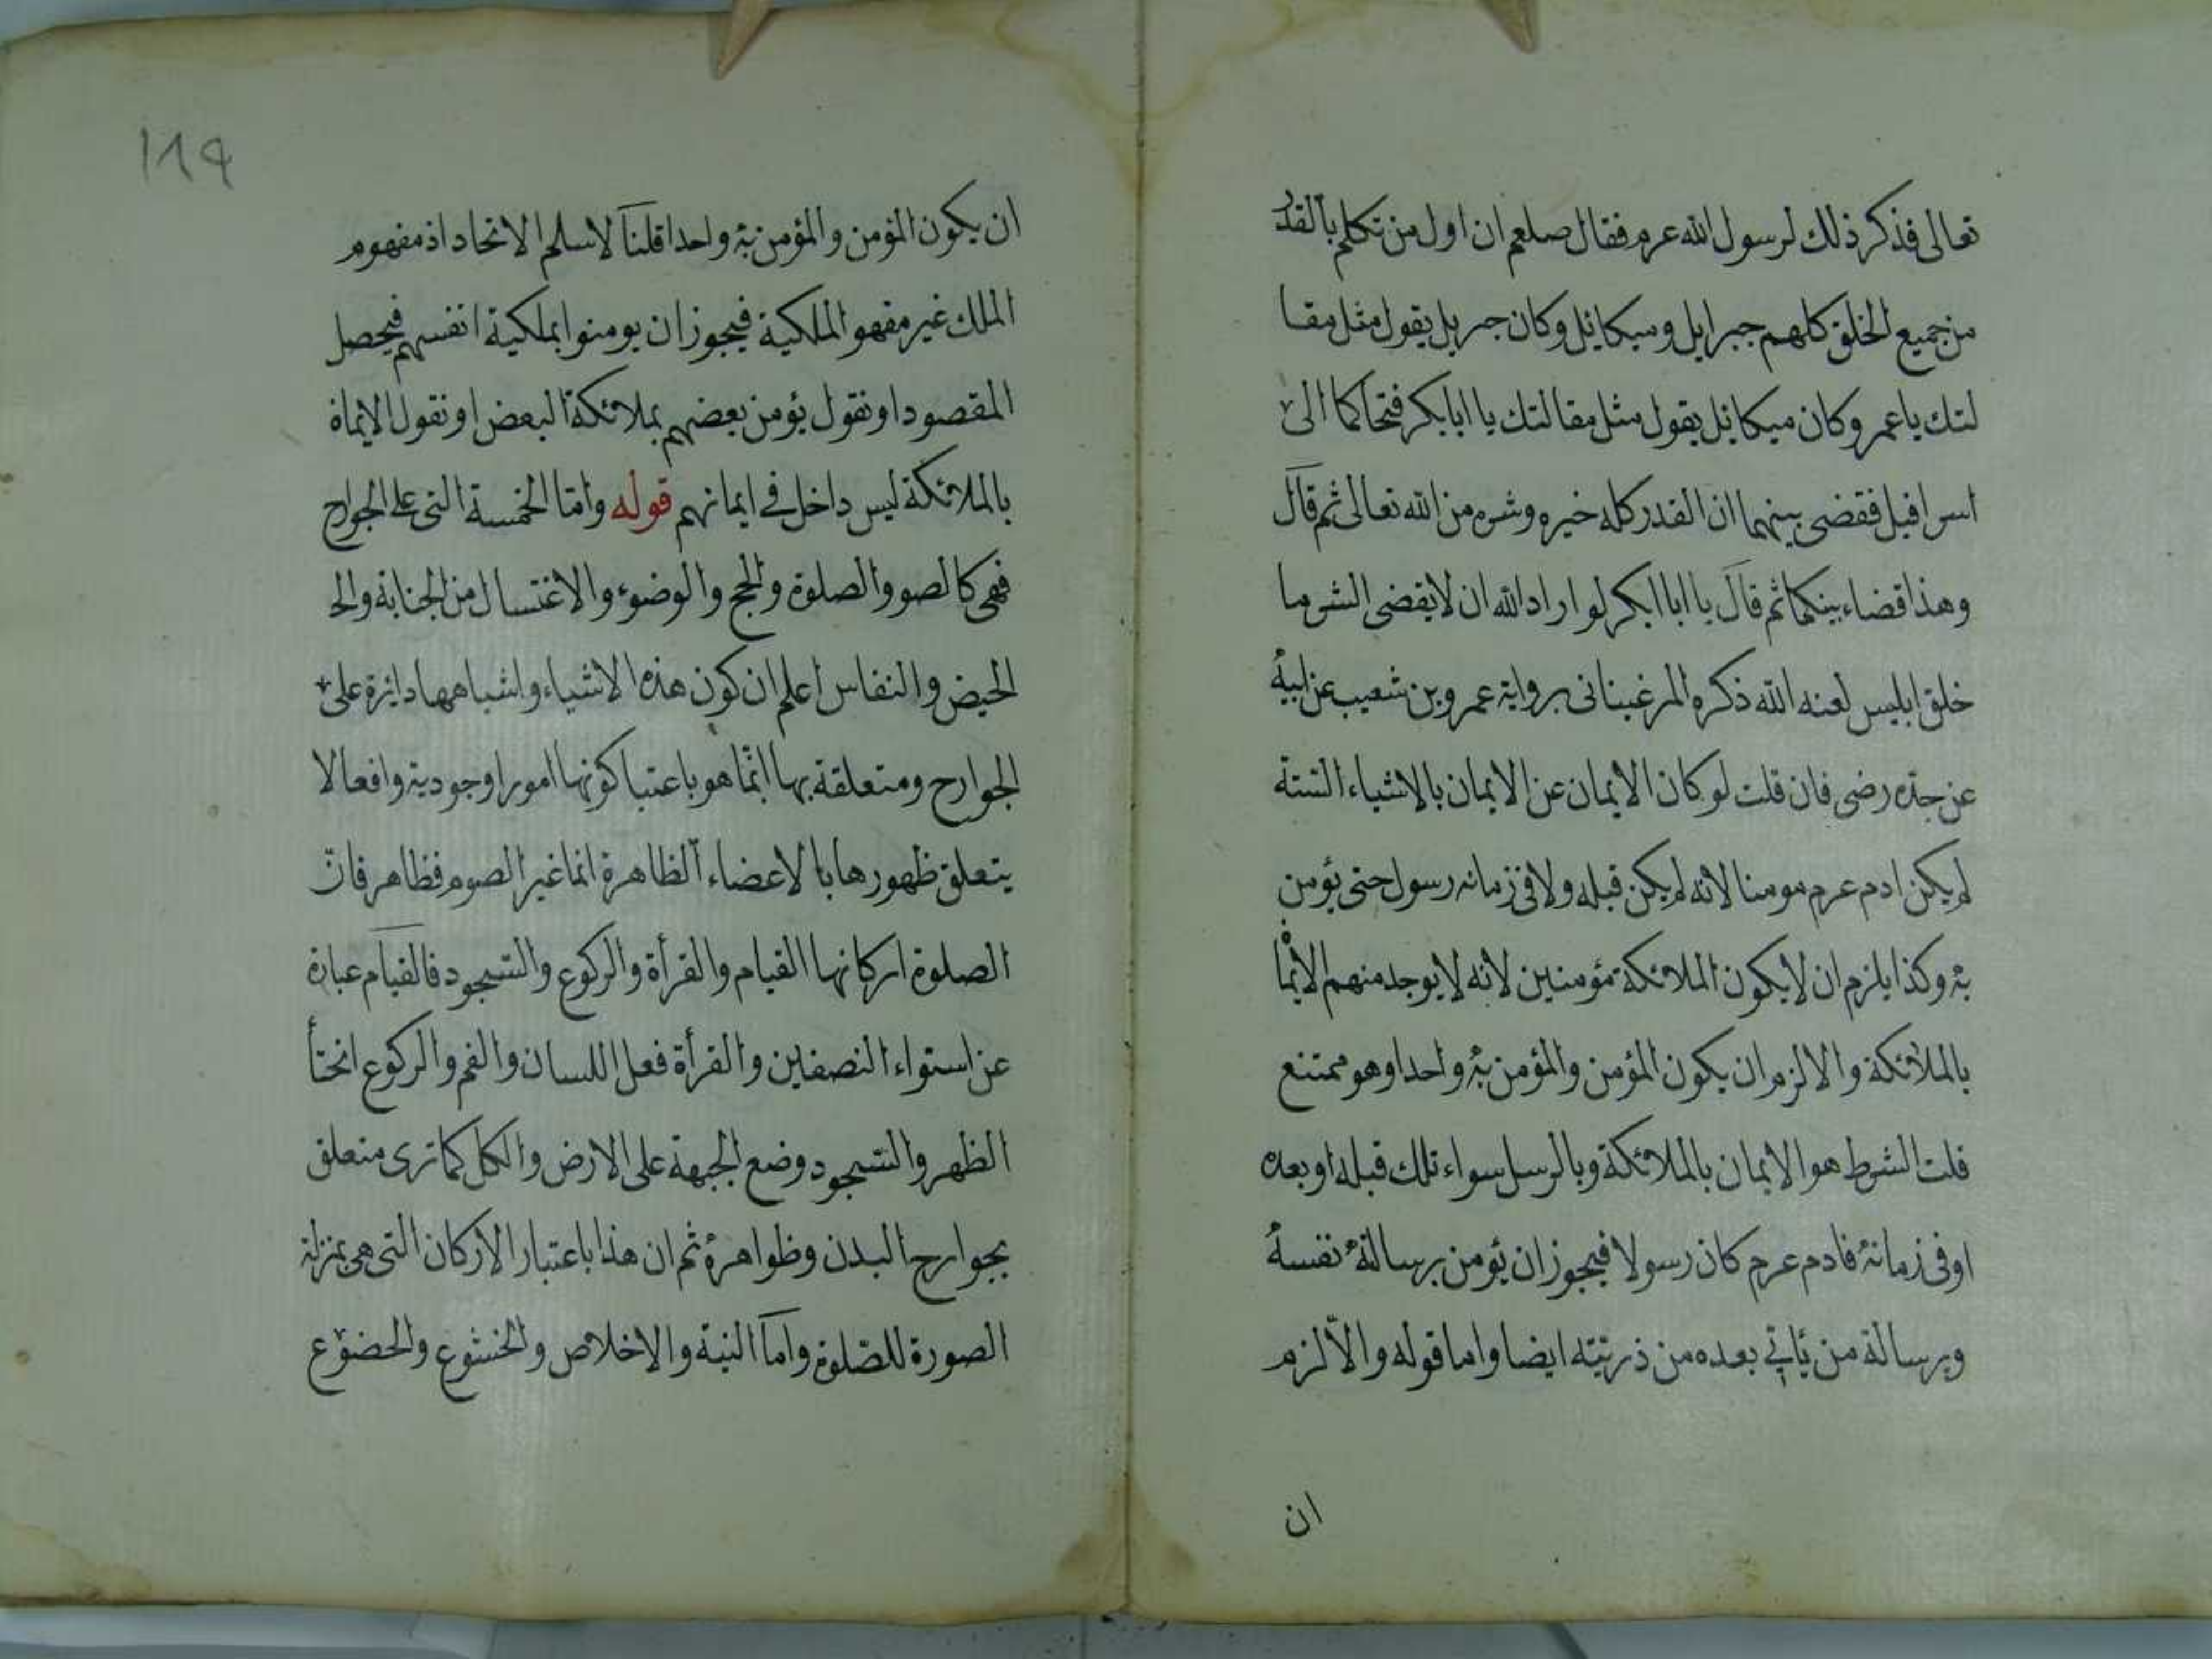 تعالى فذكر ذلك لرسول الله عرم فقال صلعم ان اول من تكلم بالقدر
من جميع الخلق كلهم جبرايل وميكائل وكان جبريل يقول مثل مقا
لتك يا عمر وكان ميكائل يقول مثل مقالتك يا ابابكر فتحاكما الى
اسرافيل فقضى بينهما ان القدر كله خيره وشره من الله تعالى ثم قال
وهذا قضاء بينكما ثم قال يا ابا ابكر لو اراد الله ان لا يقضى الشر ما
خلق ابليس لعنه الله ذكره المرغينانى برواية عمرو بن شعيب عن ابيه
عن جده رضى فان قلت لو كان الايمان عن الايمان بالاشياء الستة
لم يكن ادم عرم مومنا لانه لم يكن قبله ولا فى زمانه رسول حتى يؤمن
به وكذا يلزم ان لا يكون الملائكة مؤمنين لانه لا يوجد منهم الايمان
بالملائكة والا لزم ان يكون المؤمن والمؤمن به واحدا وهو ممتنع
قلت الشرط هو الايمان بالملائكة وبالرسل سواء تلك قبله او بعده
او فى زمانه فادم عرم كان رسولا فيجوز ان يؤمن برسالة نفسه
وبرسالة من يأتي بعده من ذريته ايضا واما قوله والا لزم
ان
119
ان يكون المؤمن والمؤمن به واحدا قلنا لا نسلم الاتحاد اذ مفهوم
الملك غير مفهو الملكية فيجوز ان يومنوا بملكية انفسهم فيحصل
المقصود او نقول يؤمن بعضهم بملائكة البعض او نقول الايماة
بالملائكة ليس داخل في ايمانهم قوله واما الخمسة التى على الجوارح
فهى كالصو والصلوة والحج والوضوء والاغتسال من الجنابة والح
الحيض والنفاس اعلم ان كون هذه الاشياء واشباهها دايرة على
الجوارح ومتعلقة بها انما هو باعتبا كونها امورا وجودية وافعالا
يتعلق ظهورها بالاعضاء الظاهرة انما غير الصوم فظاهر فان
الصلوة اركانها القيام والقرأة والركوع والسجود فالقيام عبارة
عن استواء النصفين والقرأة فعل اللسان والفم والركوع انحنأ
الظهر والسجود وضع الجبهة على الارض والكل كما ترى متعلق
بجوارح البدن وظواهره ثم ان هذا باعتبار الاركان التى هى بمنزلة
الصورة للصلوة واما النية والاخلاص والخشوع والخضوع